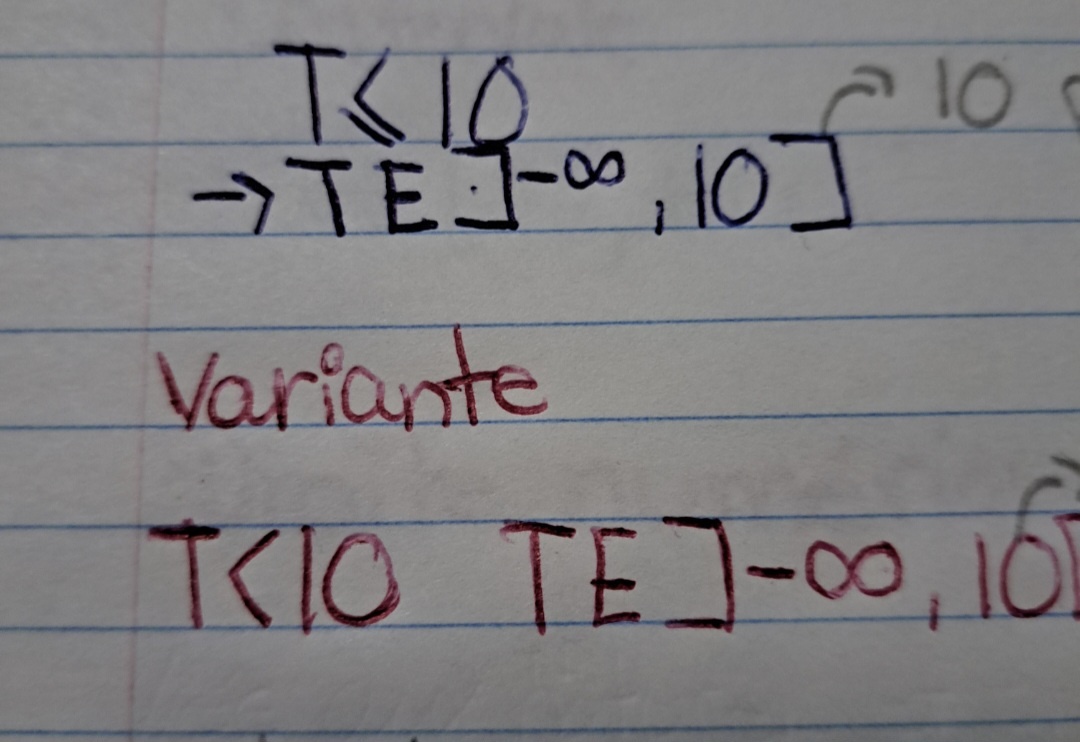 T⩽10
10
→ T E ]-∞, 10]
Variante
T<10 T E ]-∞, 10[